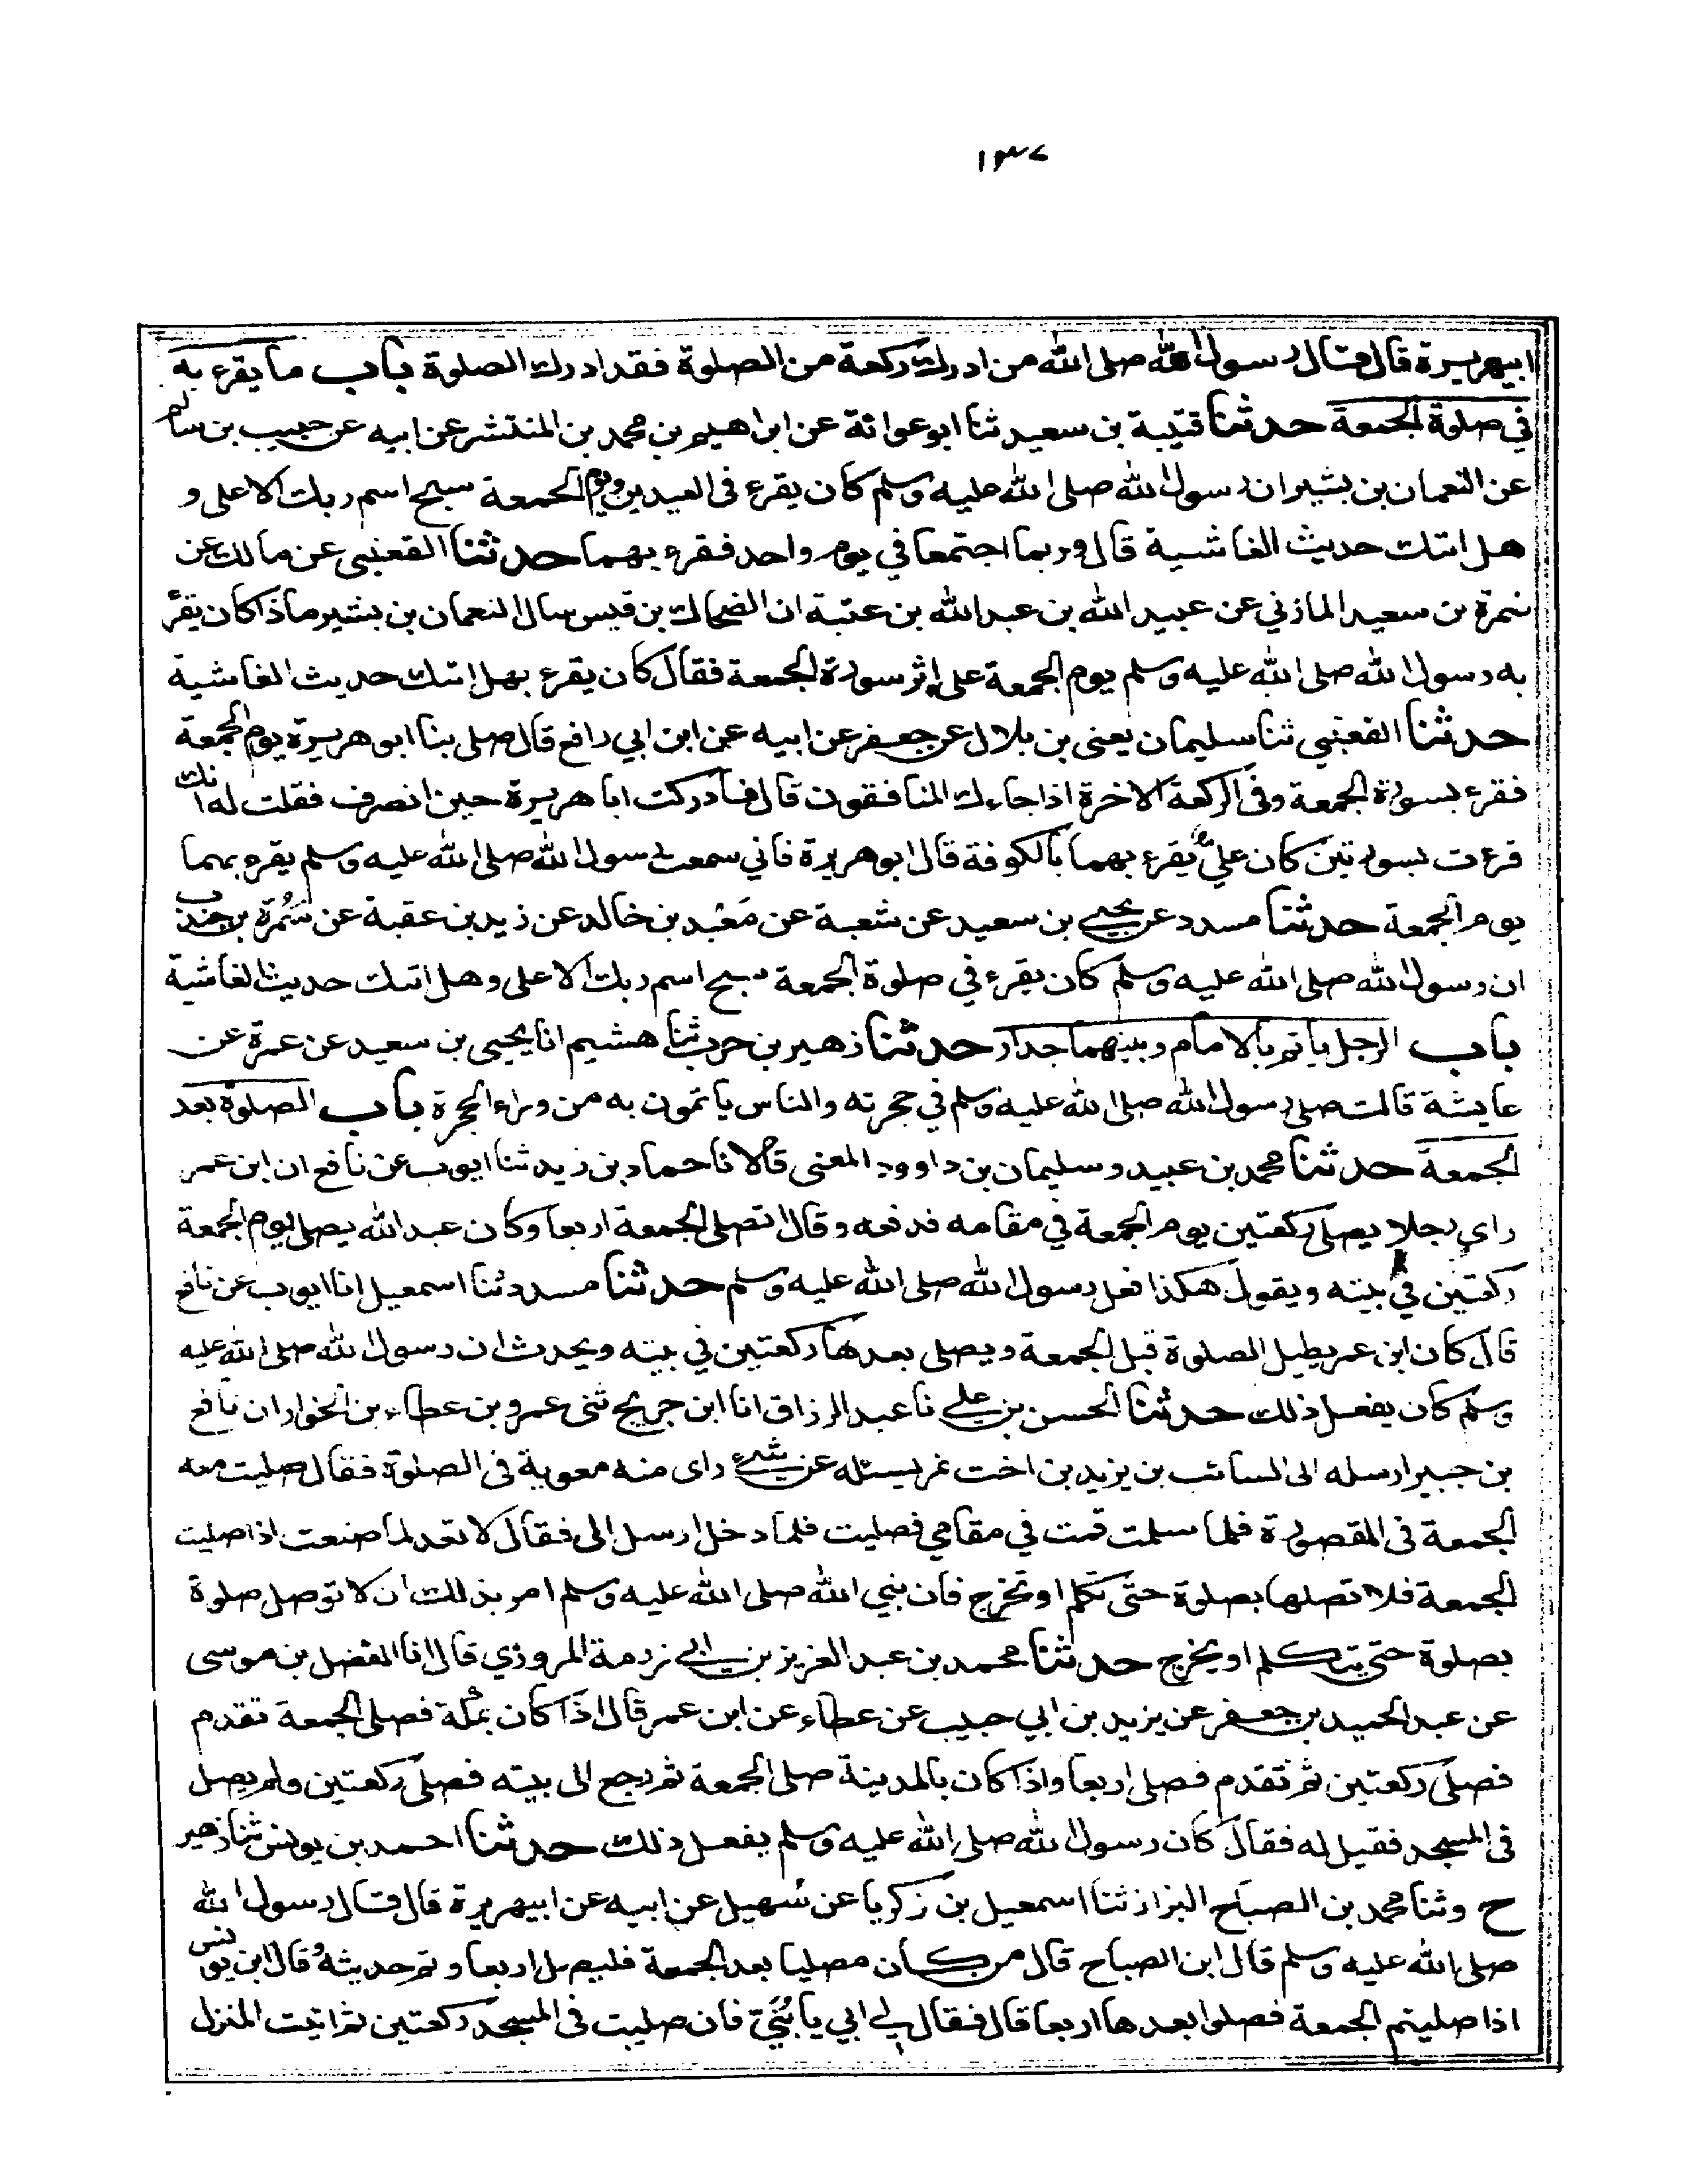 ١٣٧
ابيهريرة قال قال رسول الله صلى الله من ادرك ركعة من الصلوة فقد ادرك الصلوة باب ما يقرء به
في صلوة الجمعة حدثنا قتيبة بن سعيد ثنا ابو عوانة عن ابراهيم بن محمد بن المنتشر عن ابيه عن حبيب بن سالم
عن النعمان بن بشير ان رسول الله صلى الله عليه وسلم كان يقرء في العيدين ويوم الجمعة سبح اسم ربك الاعلى و
هل اتىك حديث الغاشية قال وربما اجتمعا في يوم واحد فقرء بهما حدثنا القعنبي عن مالك عن
ضمرة بن سعيد المازني عن عبيد الله بن عبد الله بن عتبة ان الضحاك بن قيس سال النعمان بن بشير ماذا كان يقرء
به رسول الله صلى الله عليه وسلم يوم الجمعة على اثر سورة الجمعة فقال كان يقرء بهل اتىك حديث الغاشية
حدثنا القعنبي ثنا سليمان يعنى بن بلال عن جعفر عن ابيه عن ابن ابي رافع قال صلى بنا ابو هريرة يوم الجمعة
فقرء بسورة الجمعة وفى الركعة الاخرة اذا جاءك المنافقون قال فادركت ابا هريرة حين انصرف فقلت له انك
قرءت بسورتين كان علي يقرء بهما بالكوفة قال ابو هريرة فاني سمعت رسول الله صلى الله عليه وسلم يقرء بهما
يوم الجمعة حدثنا مسدد عن يحيى بن سعيد عن شعبة عن مَعْبد بن خالد عن زيد بن عقبة عن سَمُرة بن جندب
ان رسول الله صلى الله عليه وسلم كان يقرء في صلوة الجمعة سبح اسم ربك الاعلى وهل اتىك حديث الغاشية
باب الرجل ياتم بالامام وبينهما جدار حدثنا زهير بن حرب ثنا هشيم انا يحيى بن سعيد عن عمرة عن
عايشة قالت صلى رسول الله صلى الله عليه وسلم في حجرته والناس ياتمون به من وراء الحجرة باب الصلوة بعد
الجمعة حدثنا محمد بن عبيد وسليمان بن داوود المعنى قالا نا حماد بن زيد ثنا ايوب عن نافع ان ابن عمر
راى رجلا يصلى ركعتين يوم الجمعة في مقامه فدفعه وقال اتصلى الجمعة اربعا وكان عبد الله يصلى يوم الجمعة
ركعتين في بيته ويقول هكذا فعل رسول الله صلى الله عليه وسلم حدثنا مسدد ثنا اسمعيل انا ايوب عن نافع
قال كان ابن عمر يطيل الصلوة قبل الجمعة ويصلى بعدها ركعتين في بيته ويحدث ان رسول الله صلى الله عليه
وسلم كان يفعل ذلك حدثنا الحسن بن علي نا عبد الرزاق انا ابن جريج ثنى عمرو بن عطاء بن الخوار ان نافع
بن جبير ارسله الى السائب بن يزيد بن اخت نمر يسئله عن شيء راى منه معوية فى الصلوة فقال صليت معه
الجمعة فى المقصورة فلما سلمت قمت في مقامي فصليت فلما دخل ارسل الى فقال لا تعد لما صنعت اذا صليت
الجمعة فلا تصلها بصلوة حتى تكلم او تخرج فان نبي الله صلى الله عليه وسلم امر بذلك ان لا توصل صلوة
بصلوة حتى يتكلم او يخرج حدثنا محمد بن عبد العزيز بن ابي رزمة المروزي قال انا الفضل بن موسى
عن عبد الحميد بن جعفر عن يزيد بن ابي حبيب عن عطاء عن ابن عمر قال اذا كان بمكة فصلى الجمعة تقدم
فصلى ركعتين ثم تقدم فصلى اربعا واذا كان بالمدينة صلى الجمعة ثم رجع الى بيته فصلى ركعتين ولم يصل
فى المسجد فقيل له فقال كان رسول الله صلى الله عليه وسلم يفعل ذلك حدثنا احمد بن يونس ثنا زهير
ح وثنا محمد بن الصباح البزاز ثنا اسمعيل بن زكريا عن سُهيل عن ابيه عن ابيهريرة قال قال رسول الله
صلى الله عليه وسلم قال ابن الصباح قال من كان مصليا بعد الجمعة فليصل اربعا وتم حديثه وقال ابن يونس
اذا صليتم الجمعة فصلوا بعدها اربعا قال فقال لي ابي يا بُنَيَّ فان صليت فى المسجد ركعتين ثم اتيت المنزل